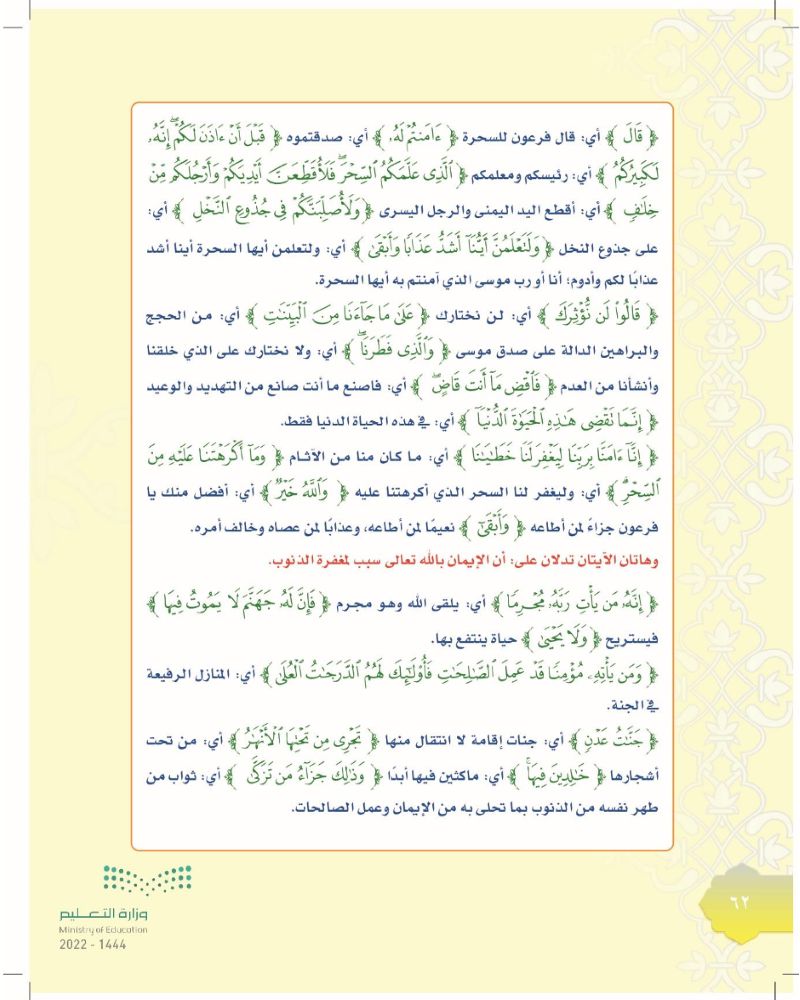 ﴿ قَالَ ﴾ أي: قال فرعون للسحرة ﴿ ءَامَنتُمْ لَهُۥ ﴾ أي: صدقتموه ﴿ قَبْلَ أَنْ ءَاذَنَ لَكُمْ ۖ إِنَّهُۥ
لَكَبِيرُكُمُ ﴾ أي: رئيسكم ومعلمكم ﴿ ٱلَّذِى عَلَّمَكُمُ ٱلسِّحْرَ ۖ فَلَأُقَطِّعَنَّ أَيْدِيَكُمْ وَأَرْجُلَكُم مِّنْ
خِلَٰفٍ ﴾ أي: أقطع اليد اليمنى والرجل اليسرى ﴿ وَلَأُصَلِّبَنَّكُمْ فِى جُذُوعِ ٱلنَّخْلِ ﴾ أي:
على جذوع النخل ﴿ وَلَتَعْلَمُنَّ أَيُّنَآ أَشَدُّ عَذَابًا وَأَبْقَىٰ ﴾ أي: ولتعلمن أيها السحرة أينا أشد
عذابًا لكم وأدوم؛ أنا أو رب موسى الذي آمنتم به أيها السحرة.
﴿ قَالُوا۟ لَن نُّؤْثِرَكَ ﴾ أي: لن نختارك ﴿ عَلَىٰ مَا جَآءَنَا مِنَ ٱلْبَيِّنَٰتِ ﴾ أي: من الحجج
والبراهين الدالة على صدق موسى ﴿ وَٱلَّذِى فَطَرَنَا ۖ ﴾ أي: ولا نختارك على الذي خلقنا
وأنشأنا من العدم ﴿ فَٱقْضِ مَآ أَنتَ قَاضٍ ۖ ﴾ أي: فاصنع ما أنت صانع من التهديد والوعيد
﴿ إِنَّمَا تَقْضِى هَٰذِهِ ٱلْحَيَوٰةَ ٱلدُّنْيَآ ﴾ أي: في هذه الحياة الدنيا فقط.
﴿ إِنَّآ ءَامَنَّا بِرَبِّنَا لِيَغْفِرَ لَنَا خَطَٰيَٰنَا ﴾ أي: ما كان منا من الآثام ﴿ وَمَآ أَكْرَهْتَنَا عَلَيْهِ مِنَ
ٱلسِّحْرِ ۗ ﴾ أي: وليغفر لنا السحر الذي أكرهتنا عليه ﴿ وَٱللَّهُ خَيْرٌ ﴾ أي: أفضل منك يا
فرعون جزاءً لمن أطاعه ﴿ وَأَبْقَىٰٓ ﴾ نعيمًا لمن أطاعه، وعذابًا لمن عصاه وخالف أمره.
وهاتان الآيتان تدلان على: أن الإيمان بالله تعالى سبب لمغفرة الذنوب.
﴿ إِنَّهُۥ مَن يَأْتِ رَبَّهُۥ مُجْرِمًا ﴾ أي: يلقى الله وهو مجرم ﴿ فَإِنَّ لَهُۥ جَهَنَّمَ لَا يَمُوتُ فِيهَا ﴾
فيستريح ﴿ وَلَا يَحْيَىٰ ﴾ حياة ينتفع بها.
﴿ وَمَن يَأْتِهِۦ مُؤْمِنًا قَدْ عَمِلَ ٱلصَّٰلِحَٰتِ فَأُو۟لَٰٓئِكَ لَهُمُ ٱلدَّرَجَٰتُ ٱلْعُلَىٰ ﴾ أي: المنازل الرفيعة
في الجنة.
﴿ جَنَّٰتُ عَدْنٍ ﴾ أي: جنات إقامة لا انتقال منها ﴿ تَجْرِى مِن تَحْتِهَا ٱلْأَنْهَٰرُ ﴾ أي: من تحت
أشجارها ﴿ خَٰلِدِينَ فِيهَا ۚ ﴾ أي: ماكثين فيها أبدًا ﴿ وَذَٰلِكَ جَزَآءُ مَن تَزَكَّىٰ ﴾ أي: ثواب من
طهر نفسه من الذنوب بما تحلى به من الإيمان وعمل الصالحات.
٦٢
وزارة التعليم
Ministry of Education
2022 - 1444